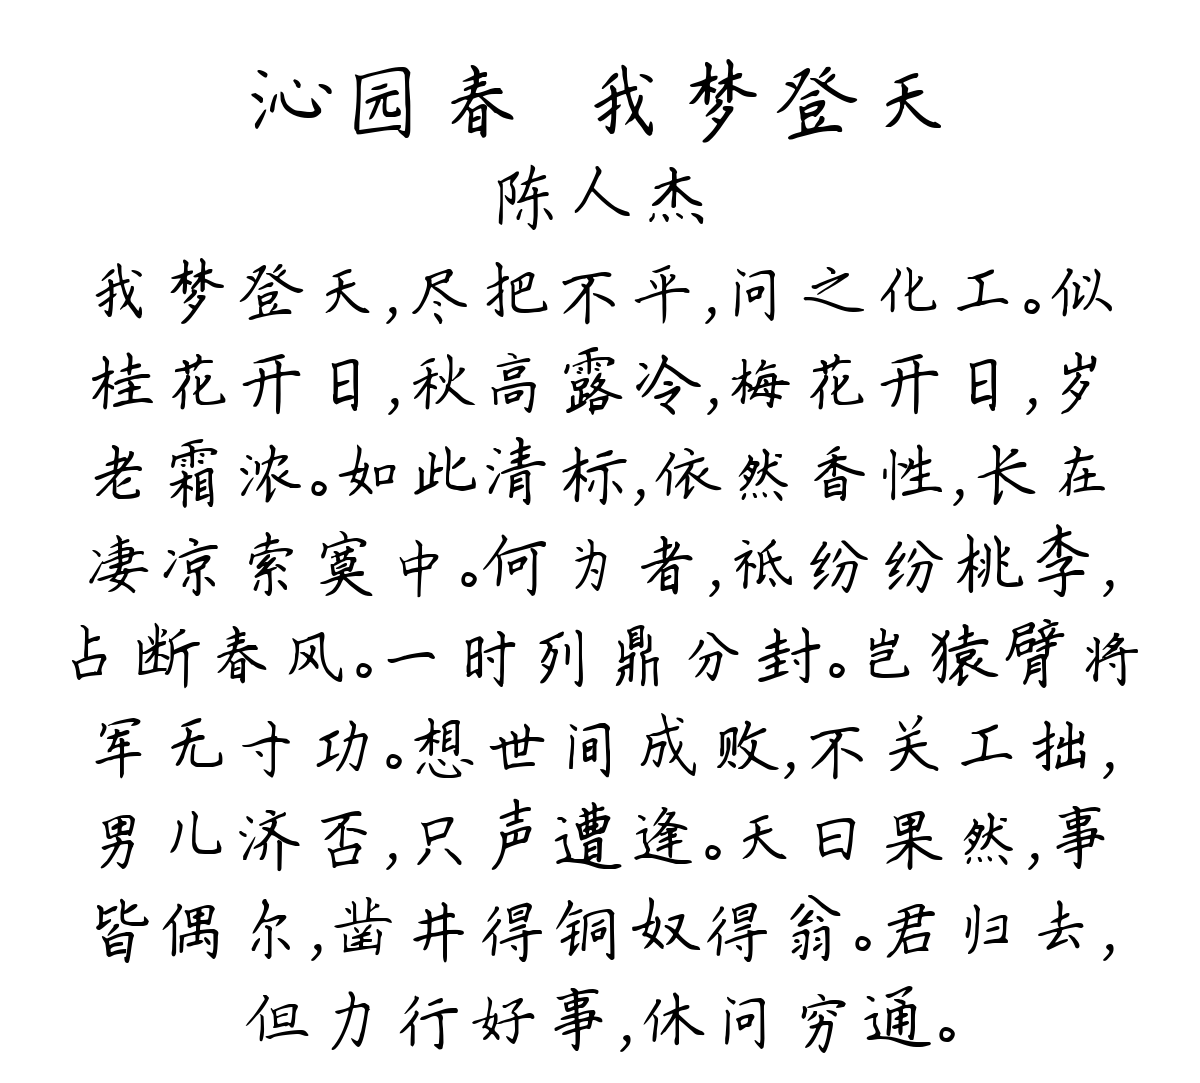 沁园春 我梦登天
陈人杰
我梦登天,尽把不平,问之化工。似
桂花开日,秋高露冷,梅花开日,岁
老霜浓。如此清标,依然香性,长在
凄凉索寞中。何为者,祗纷纷桃李,
占断春风。一时列鼎分封。岂猿臂将
军无寸功。想世间成败,不关工拙,
男儿济否,只声遭逢。天曰果然,事
皆偶尔,凿井得铜奴得翁。君归去,
但力行好事,休问穷通。